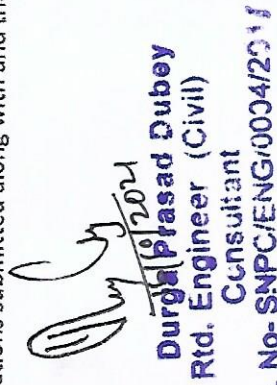 ations submitted along with and th
Durga Prasad Dubey
Rtd. Engineer (Civil)
Consultant
No- SNPC/ENG/0004/201